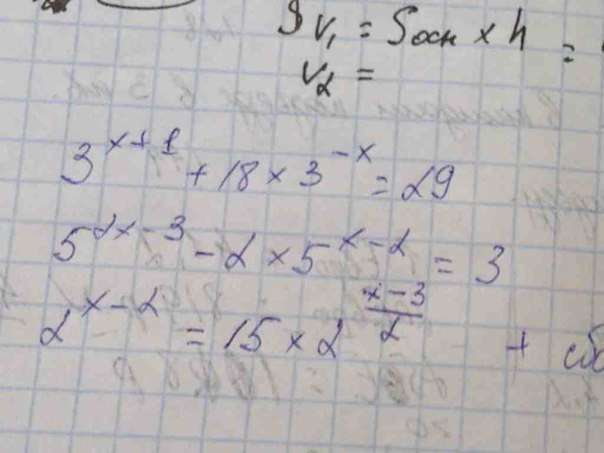 V₁ = Sосн × h =
V₂ =
3^{x+1} + 18 × 3^{-x} = 29
5^{2x-3} - 2 × 5^{x-2} = 3
2^{x-2} = 15 × 2^{\frac{x-3}{2}} +